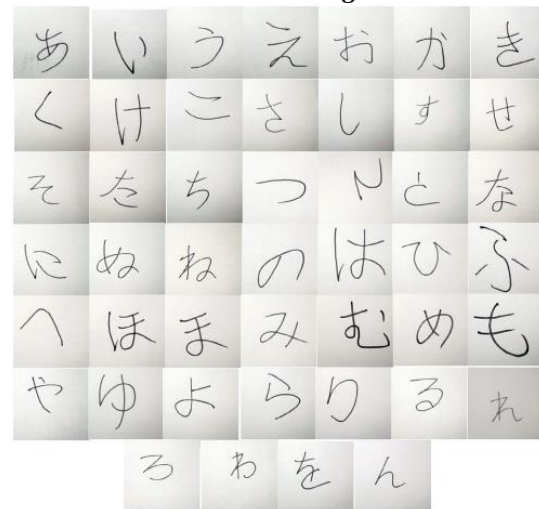 あ い う え お か き
く け こ さ し す せ
そ た ち つ と な
に ぬ ね の は ひ ふ
へ ほ ま み む め も
や ゆ よ ら り る れ
ろ わ を ん